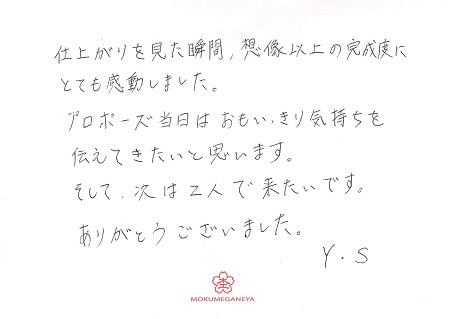 仕上がりを見た瞬間,想像以上の完成度に
とても感動しました。
プロポーズ当日はおもいっきり気持ちを
伝えてきたいと思います。
そして、次は2人で来たいです。
ありがとうございました。
Y.S
MOKUMEGANEYA